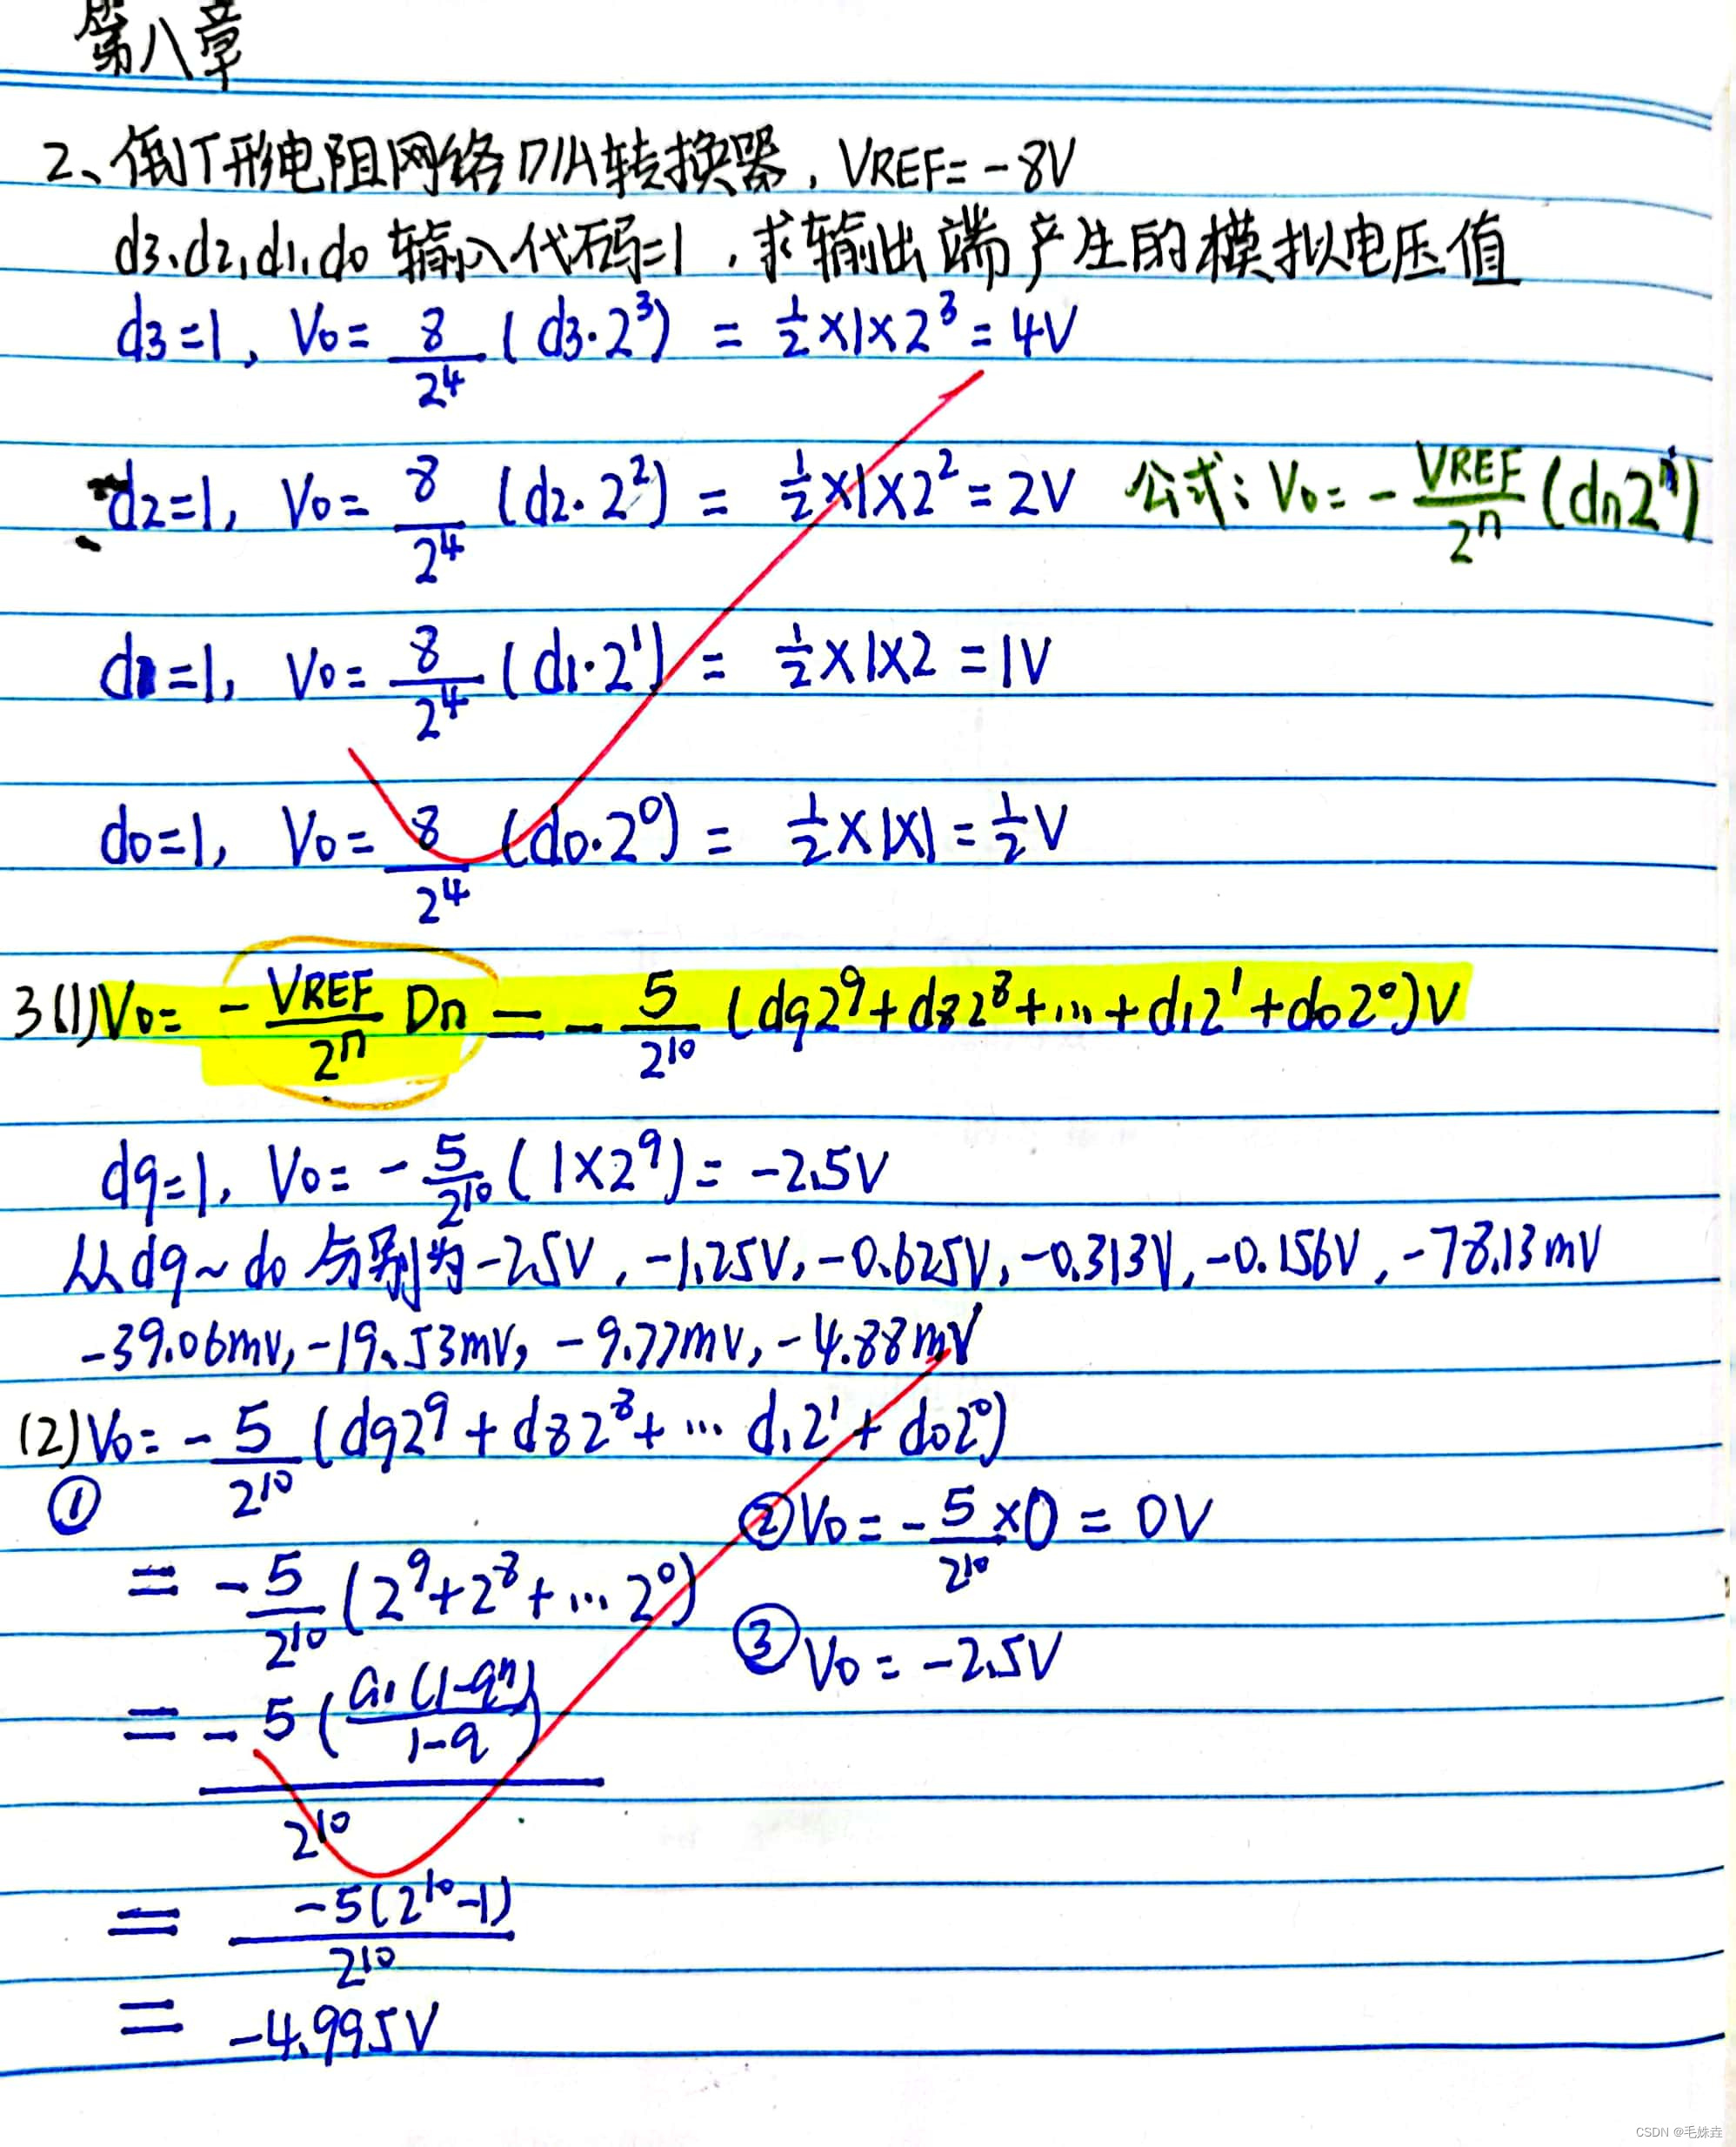 第八章
2、倒T形电阻网络D/A转换器，VREF=-8V
d3、d2、d1、d0 输入代码=1，求输出端产生的模拟电压值
d3=1, V0= 8/2⁴ (d3·2³) = 1/2×1×2³=4V
d2=1, V0= 8/2⁴ (d2·2²) = 1/2×1×2²=2V 公式: V0=-VREF/2ⁿ (dn2ⁿ)
d1=1, V0= 8/2⁴ (d1·2¹) = 1/2×1×2=1V
d0=1, V0= 8/2⁴ (d0·2⁰) = 1/2×1×1=1/2V
3(1)V0= -VREF/2ⁿ Dn = -5/2¹⁰ (d92⁹+d82⁸+...+d12¹+d02⁰)V
d9=1, V0= -5/2¹⁰ (1×2⁹)= -2.5V
从d9~d0分别为-2.5V, -1.25V, -0.625V, -0.313V, -0.156V, -78.13mV
-39.06mV, -19.53mV, -9.77mV, -4.88mV
(2)V0= -5/2¹⁰ (d92⁹+d82⁸+...d12¹+d02⁰)
① ②V0=-5/2¹⁰×0=0V
= -5/2¹⁰ (2⁹+2⁸+...2⁰)
③V0=-2.5V
= -5(a1(1-qⁿ)/1-q)/2¹⁰
= -5(2¹⁰-1)/2¹⁰
= -4.995V
CSDN @毛姝垚